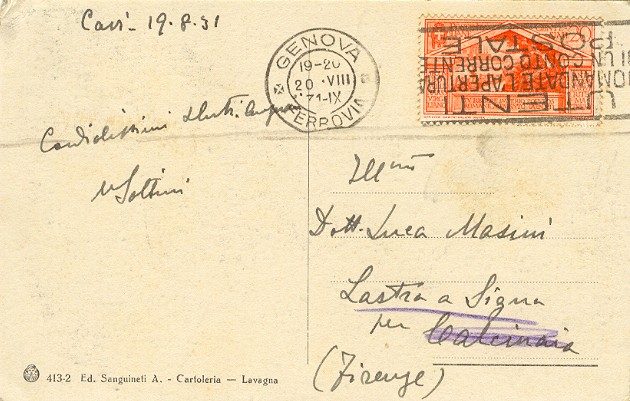 Cavi - 19-8-31
GENOVA
19-20
20 VIII
31-IX
FERROVIA
UTEN
DOMANDATE L'APERTURA
DI UN CONTO CORRENTE
POSTALE
Cordialissimi
Ill.mo
Dott. Luca Masini
Lastra a Signa
per Calcinaia
(Firenze)
413-2 Ed. Sanguineti A. - Cartoleria — Lavagna